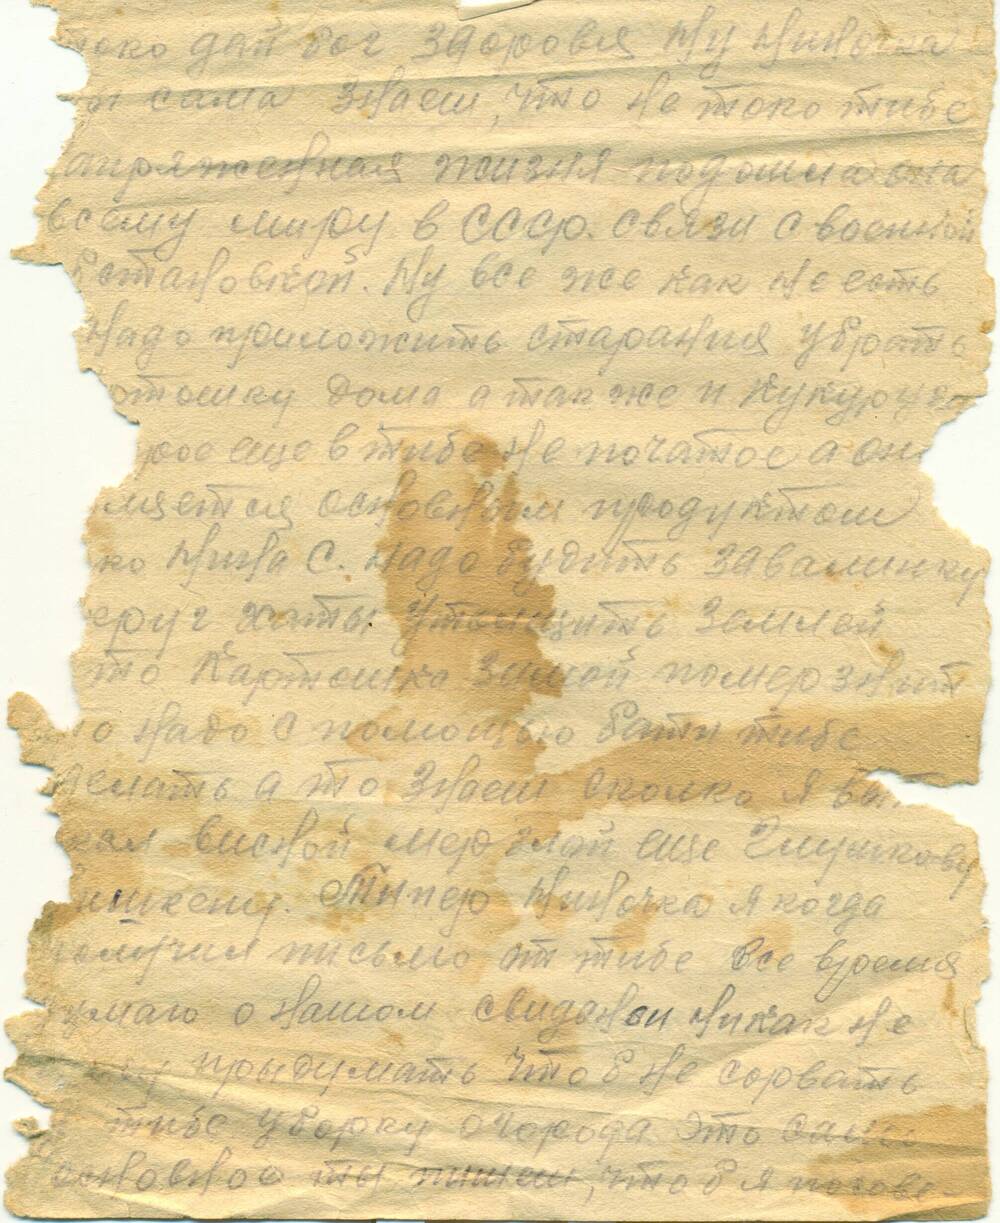 токо дай бог здоровя Ну Ниночка
ты сама знаеш, что не токо тибе
напряженная жизня подошла она
всему миру в СССР. связи с военной
бстановкой. Ну все же как не есть
надо приложить старания убрать
ртошку дома а так же и кукурузу
рое еще в тибе не початое а он
ляется основным продуктом
ко Нина С. надо будить завалинку
круг хаты утолщить землей
то картошка зимой померзнит
о надо с помощью бати тибе
делать а то знаеш сколко я вы
кал висной мерзлой еще
Типер Ниночка я когда
получил письмо от тибе все время
умаю о нашом свидании никак не
придумать что б не сорвать
тибе уборку огорода Это само
основное ты пишеш, что б я погове-